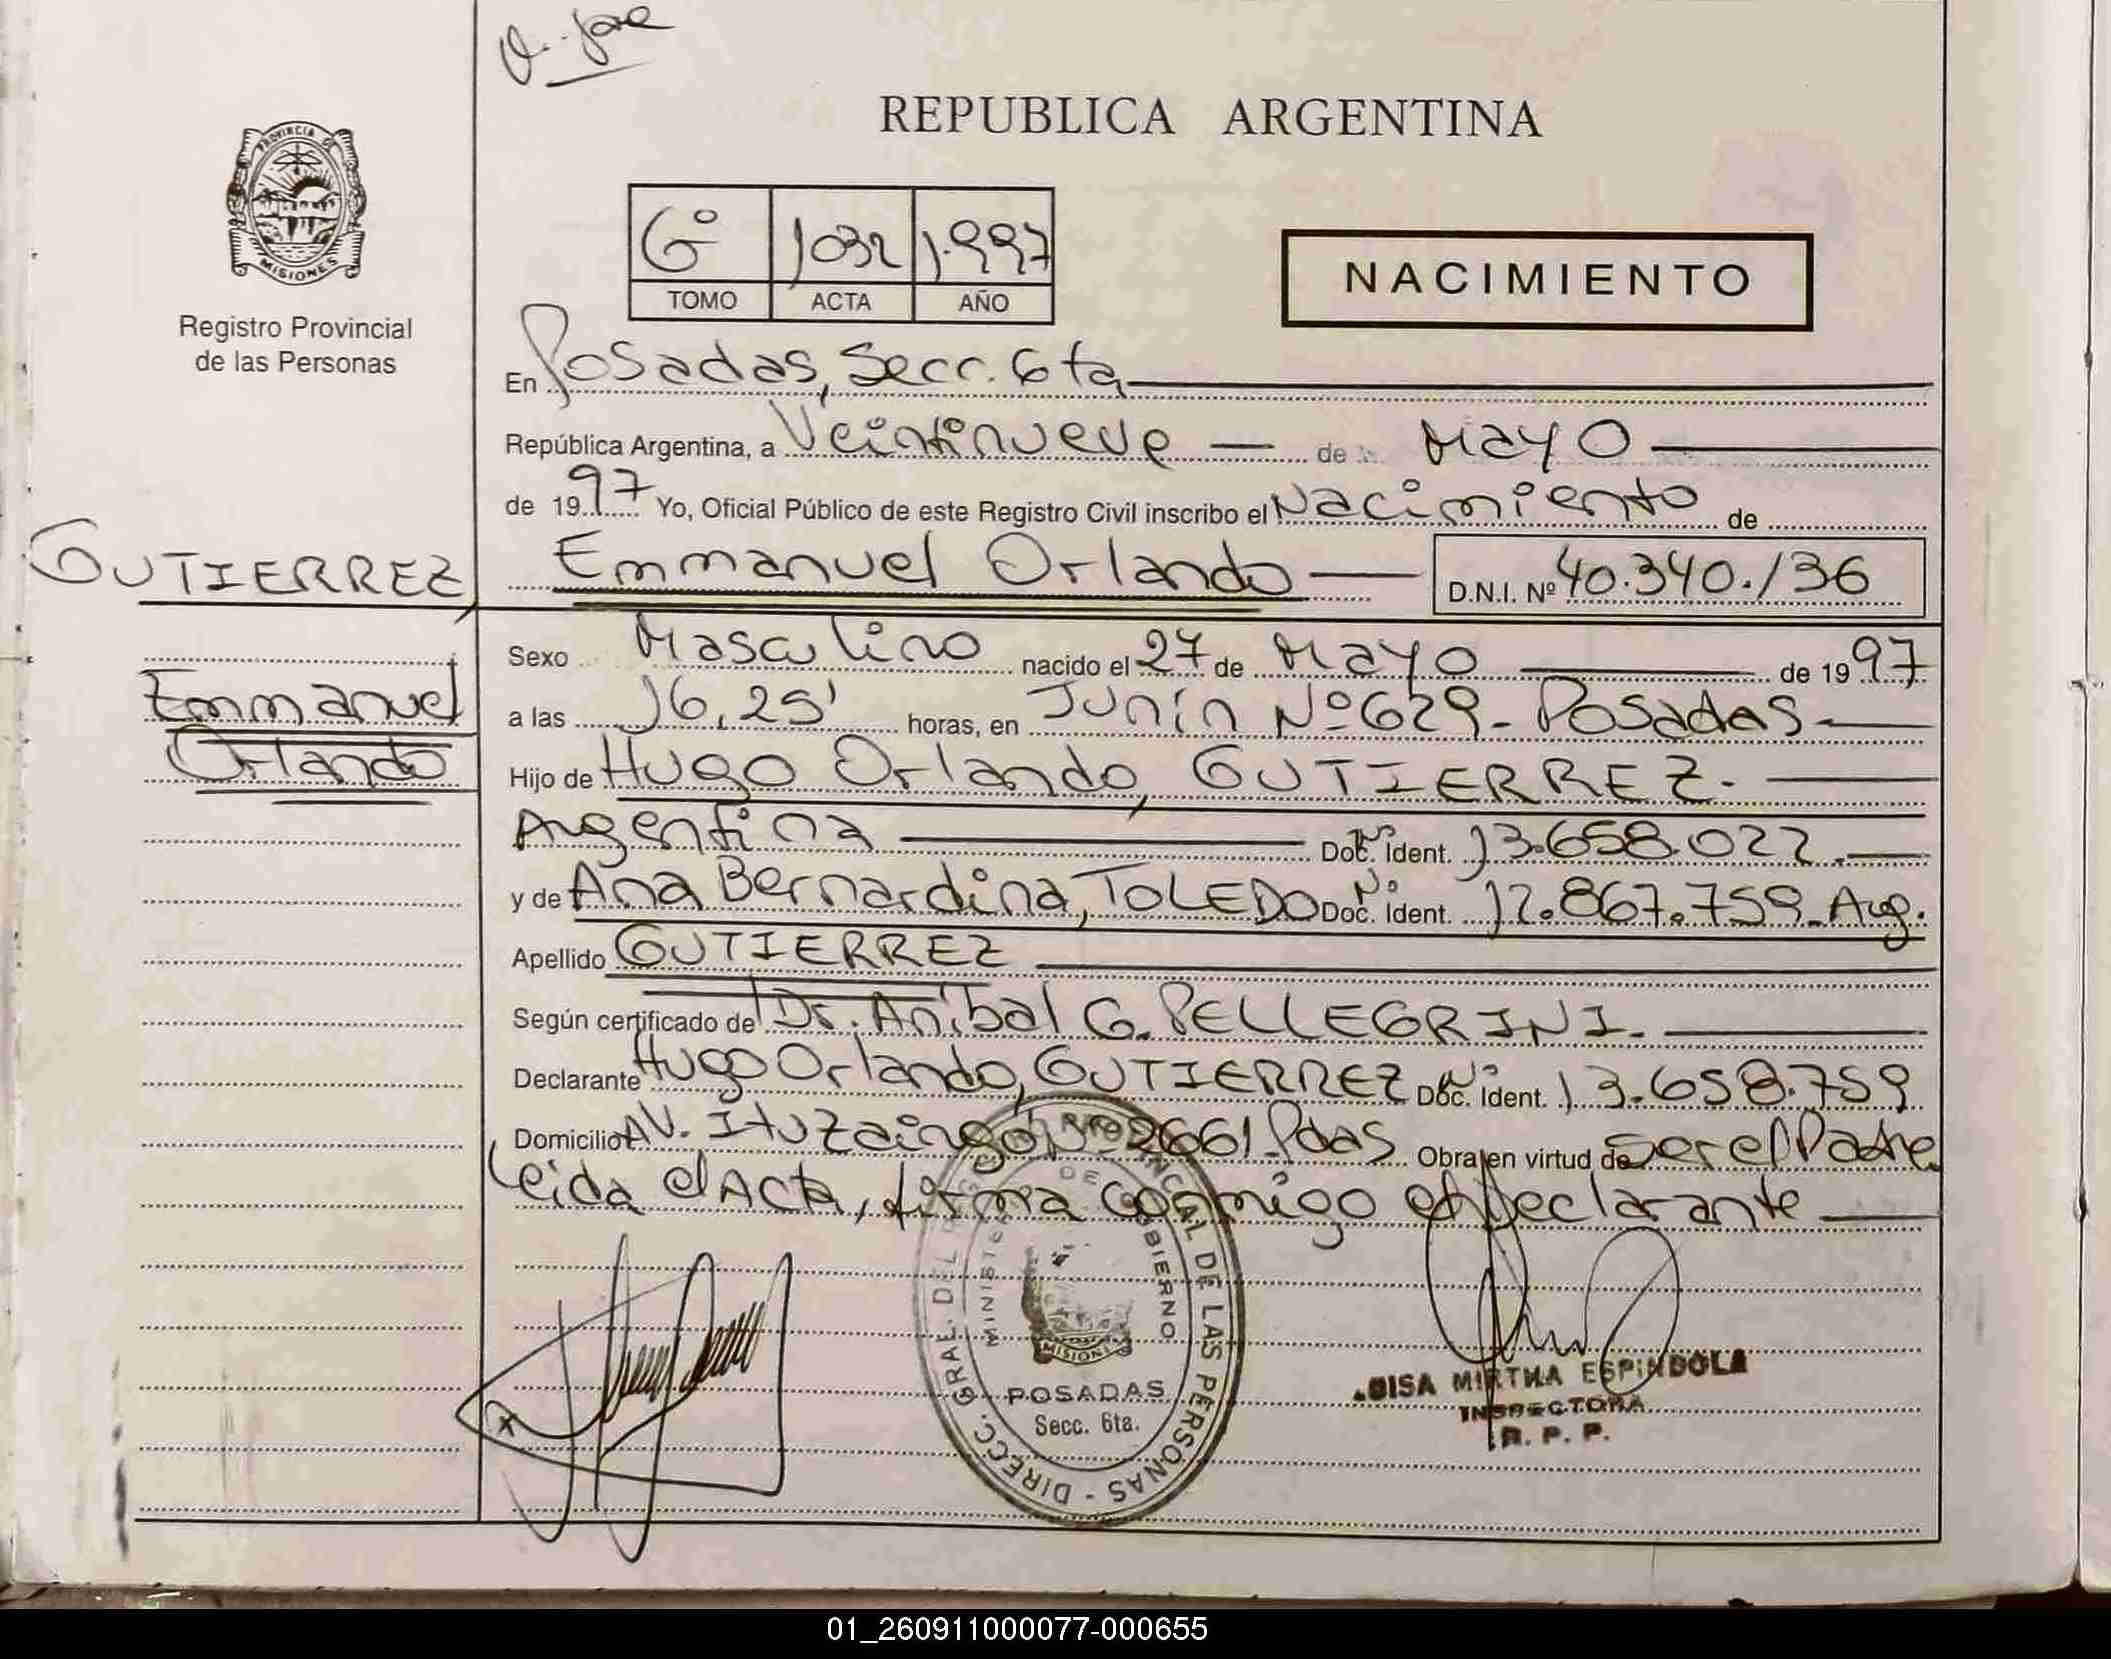 REPUBLICA ARGENTINA
PROVINCIA DE
MISIONES
Registro Provincial
de las Personas
6° 1032 1.997
TOMO ACTA AÑO
NACIMIENTO
En Posadas, Secc. 6ta
República Argentina, a Veintinueve de Mayo
de 1997 Yo, Oficial Público de este Registro Civil inscribo el Nacimiento de
GUTIERREZ
Emmanuel Orlando D.N.I. Nº 40.340.136
Sexo Masculino nacido el 27 de Mayo de 1997
Emmanuel
a las 16,25' horas, en Junín Nº 629- Posadas
Orlando
Hijo de Hugo Orlando, GUTIERREZ.
Argentina Doc. Ident. Nº 13.658.022.
y de Ana Bernardina, TOLEDO Doc. Ident. Nº 12.867.759- Arg.
Apellido GUTIERREZ
Según certificado de Dr. Aníbal G. PELLEGRINI.
Declarante Hugo Orlando, GUTIERREZ Doc. Ident. Nº 13.658.759
Domicilio AV. Ituzaingó Nº 2661- Pdas Obra en virtud de ser el Padre.
Leida el Acta, firma conmigo el Declarante
DIRECC. GRAL. DEL REGISTRO PROVINCIAL DE LAS PERSONAS -
MINISTERIO DE GOBIERNO
MISIONES
POSADAS
Secc. 6ta.
MIRTHA ESPINDOLA
INSPECTORA
R. P. P.
01_260911000077-000655